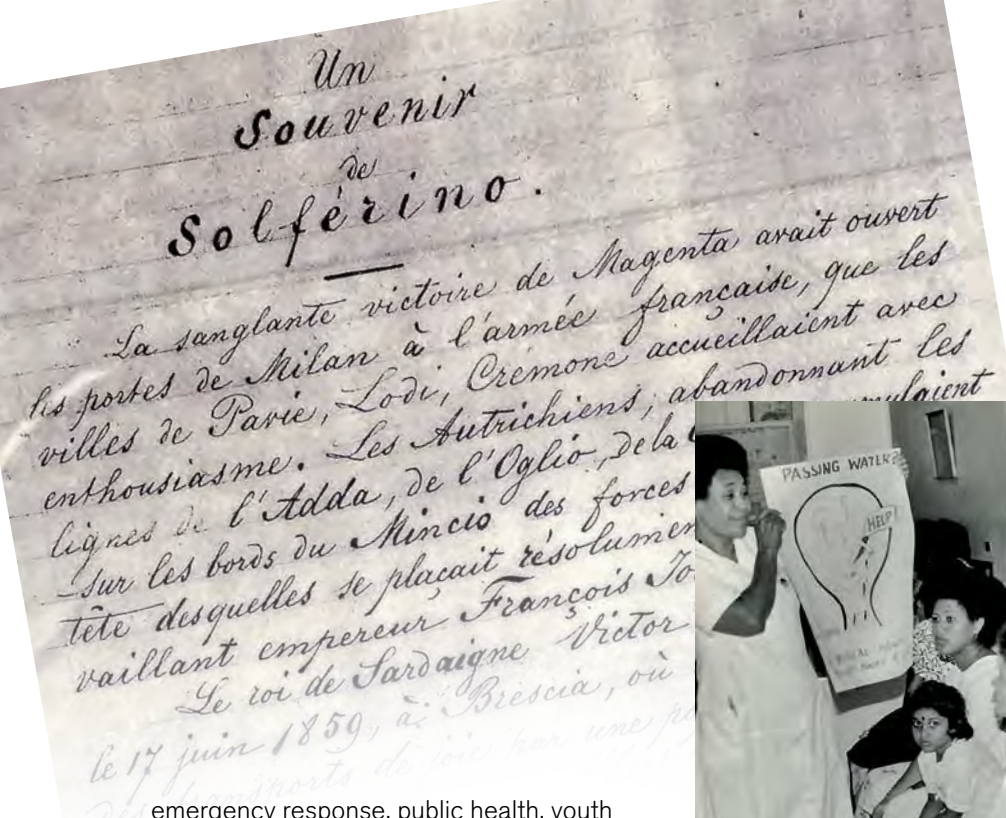 Un
Souvenir
de
Solférino.
La sanglante victoire de Magenta avait ouvert
les portes de Milan à l'armée française, que les
villes de Pavie, Lodi, Crémone accueillaient avec
enthousiasme. Les Autrichiens, abandonnant les
lignes de l'Adda, de l'Oglio, de la
sur les bords du Mincio des forces
tête desquelles se plaçait
vaillant empereur François
Le roi de Sardaigne Victor
le 17 juin 1859, à Brescia, où
transports de joie par une
PASSING WATER?
HELP!
emergency response, public health, youth